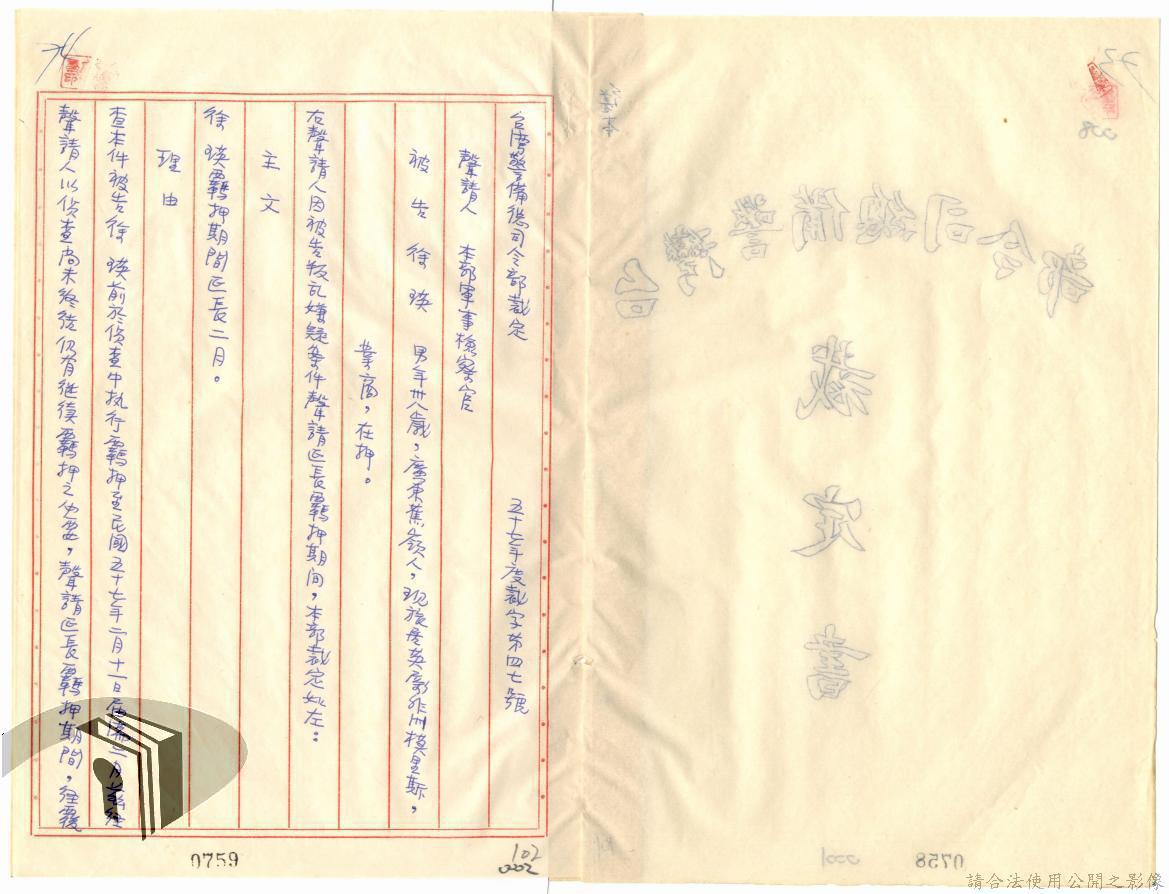 台灣警備總司令部裁定 五十七年度裁字第四七號
聲請人 本部軍事檢察官
被告 徐瑛 男年卅八歲,廣東蕉嶺人,現旅居英屬非洲模里斯,
業商,在押。
右聲請人因被告叛乱嫌疑案件聲請延長羈押期间,本部裁定如左:
主文
徐瑛羈押期間延長二月。
理由
查本件被告徐瑛前於偵查中执行羈押至民國五十七年二月十一日屆滿二月
聲請人以偵查尚未終結仍有继续羈押之必要,聲請延長羈押期間,经覆
0759
102
002
台灣警備總司令部
裁定書
0758
001
請合法使用公開之影像